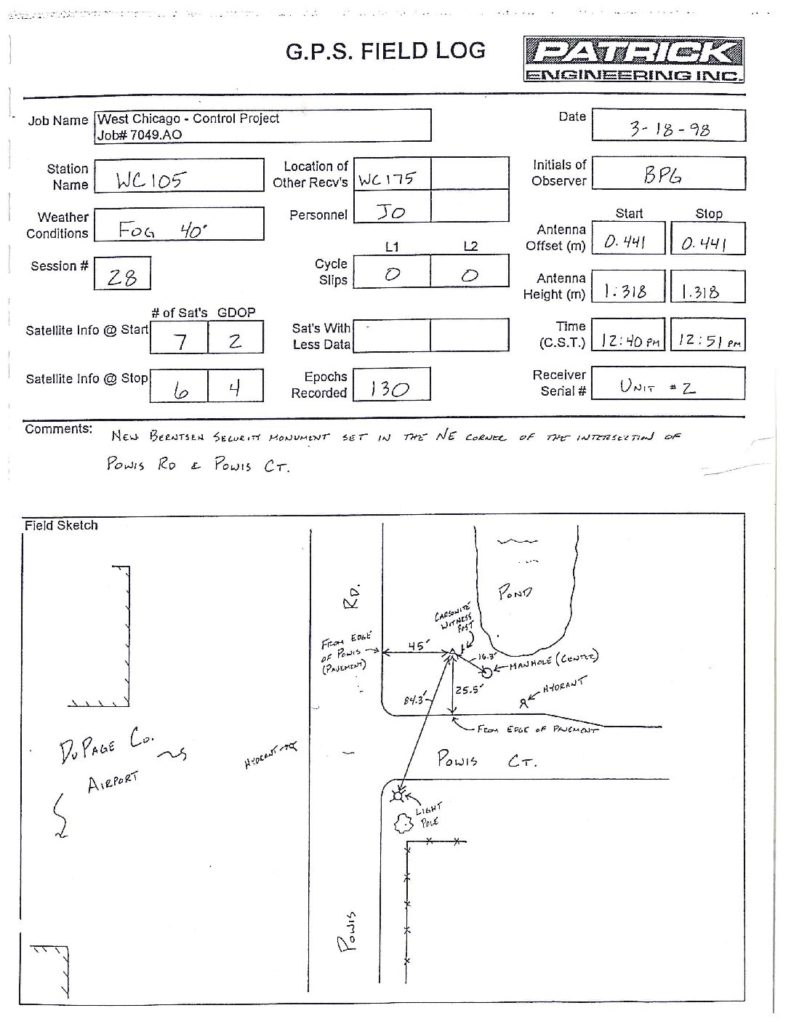 G.P.S. FIELD LOG
PATRICK
ENGINEERING INC.
Job Name
West Chicago - Control Project
Job# 7049.AO
Date
3-18-98
Station
Name
WC105
Location of
Other Recv's
WC175
Initials of
Observer
BPG
Weather
Conditions
FOG 40°
Personnel
JO
Start
Stop
Antenna
Offset (m)
0.441
0.441
Session #
28
L1
L2
Cycle
Slips
0
0
Antenna
Height (m)
1.318
1.318
# of Sat's
GDOP
Satellite Info @ Start
7
2
Sat's With
Less Data
Time
(C.S.T.)
12:40 PM
12:51 PM
Satellite Info @ Stop
6
4
Epochs
Recorded
130
Receiver
Serial #
UNIT #2
Comments:
NEW BERNTSEN SECURITY MONUMENT SET IN THE NE CORNER OF THE INTERSECTION OF
POWIS RD & POWIS CT.
Field Sketch
RD.
POND
CARSONITE
WITNESS
POST
FROM EDGE
OF POWIS
(PAVEMENT)
45'
16.3'
MANHOLE (CENTER)
84.3'
25.5'
HYDRANT
FROM EDGE OF PAVEMENT
DUPAGE CO.
AIRPORT
HYDRANT
POWIS CT.
LIGHT
POLE
POWIS